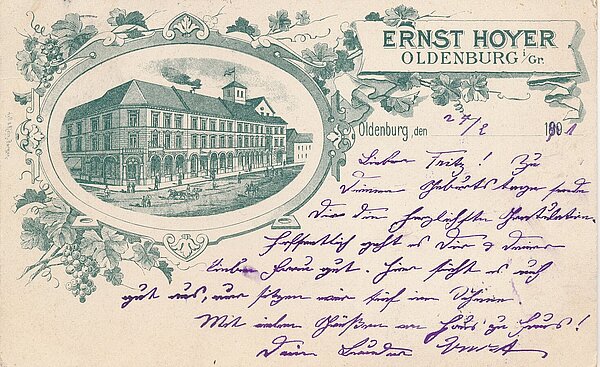 ERNST HOYER
OLDENBURG i/Gr.
Oldenburg, den 27/2 1901
Lieber Fritz! Zu
Deinem Geburtstage sende
Dir die herzlichste Gratulation.
Hoffentlich geht es Dir & Deiner
lieben Frau gut. Hier sieht es auch
gut aus, nur sitzen wir tief im Schnee!
Mit vielen Grüßen von Haus zu Haus!
Dein Bruder Ernst